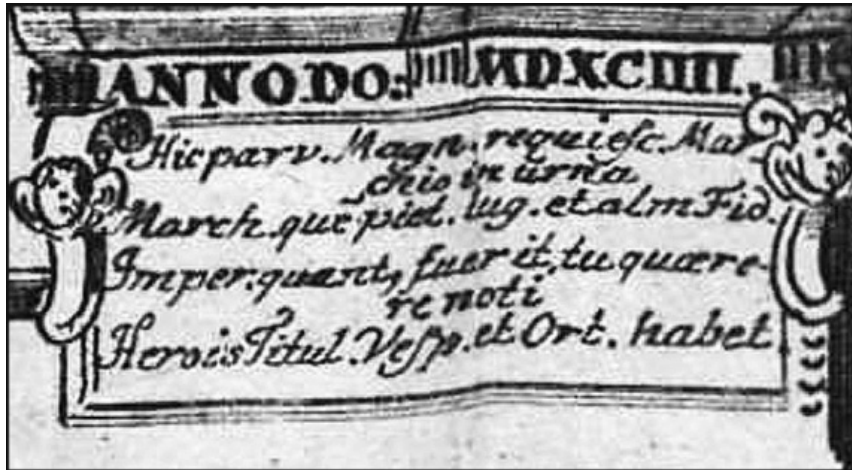 ANNO DO: MDXCIIII.
Hic parv. Magn. requiesc. Mar
chio in urna
March. que piet. lug. et alm Fid.
Imper. quant, fuer it, tu quære-
re noti
Herois Titul. Vesp. et Ort. habet